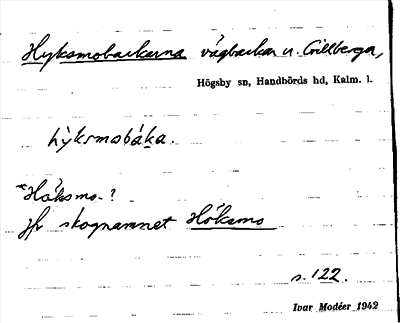 Hyksmobackarna vägbackar u. Gillberga,
Högsby sn, Handbörds hd, Kalm. l.
hỳksmobáka.
*Höksmo-?
jfr skognamnet Höksmo
s. 122.
Ivar Modéer 1942